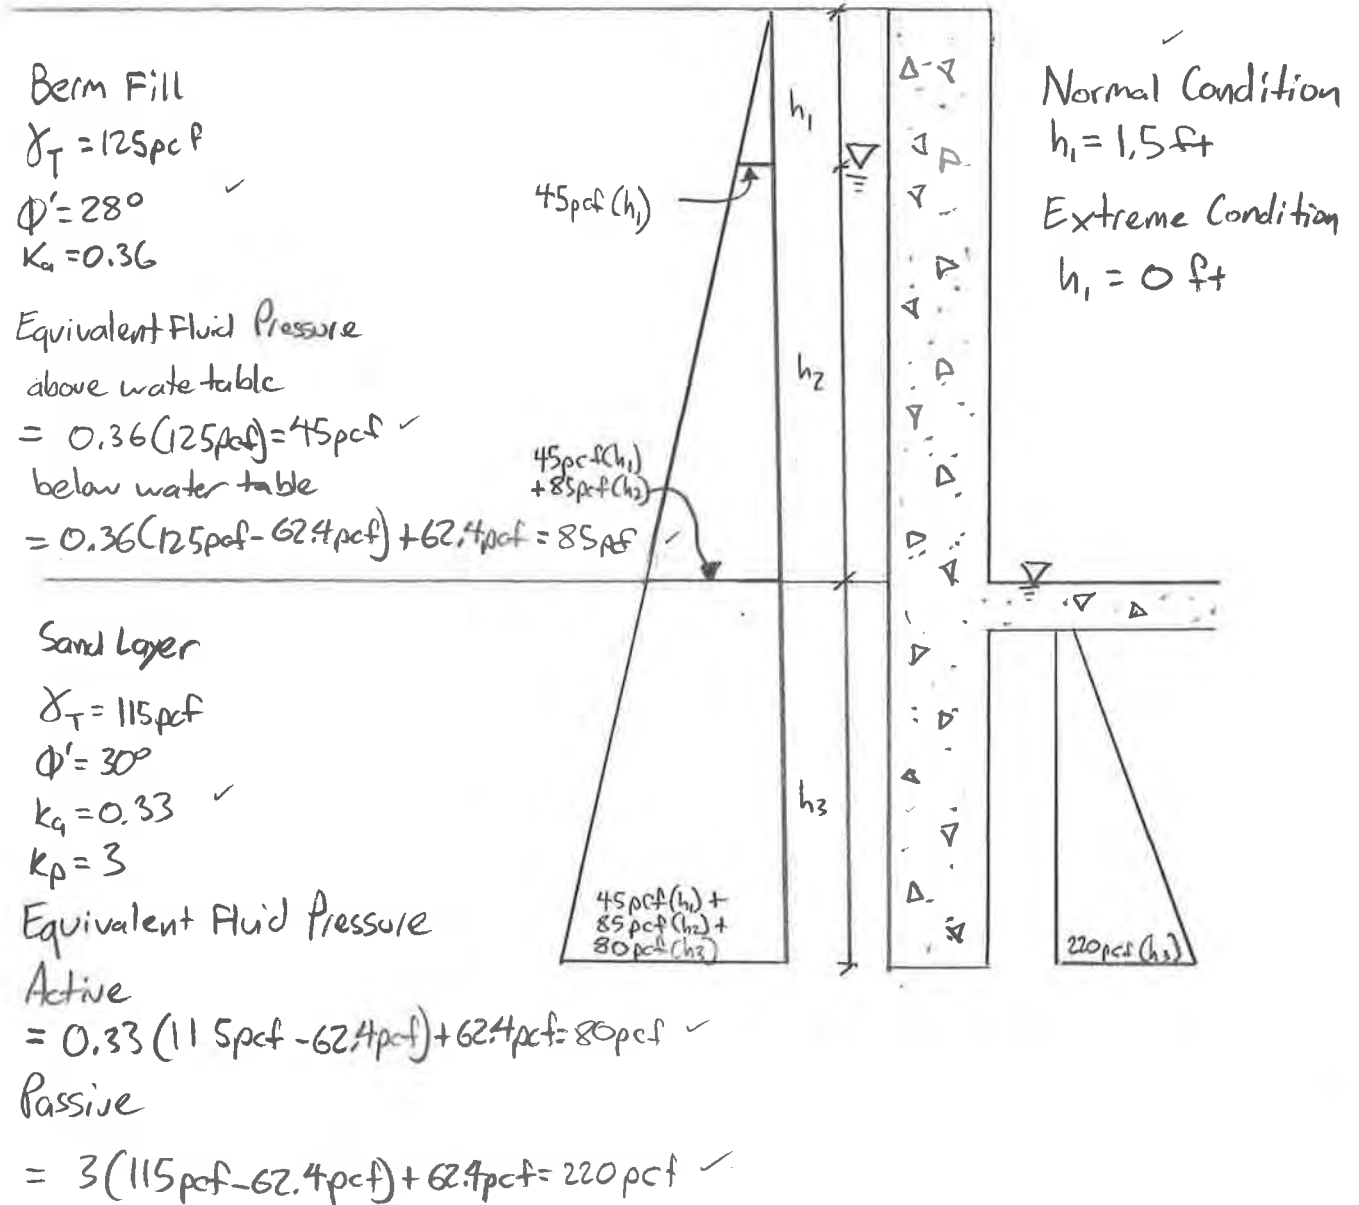 Berm Fill
γT = 125pcf
Φ' = 28° ✓
Ka = 0.36
Equivalent Fluid Pressure
above wate table
= 0.36(125pcf) = 45pcf ✓
below water table
= 0.36(125pcf - 62.4pcf) + 62.4pcf = 85pcf ✓
Sand Layer
γT = 115pcf
Φ' = 30°
ka = 0.33 ✓
Kp = 3
Equivalent Fluid Pressure
Active
= 0.33(115pcf - 62.4pcf) + 62.4pcf = 80pcf ✓
Passive
= 3(115pcf - 62.4pcf) + 62.4pcf = 220pcf ✓
45pcf(h1)
45pcf(h1)
+ 85pcf(h2)
45pcf(h1) +
85pcf(h2) +
80pcf(h3)
h1
h2
h3
220pcf(h3)
✓
Normal Condition
h1 = 1.5 ft
Extreme Condition
h1 = 0 ft